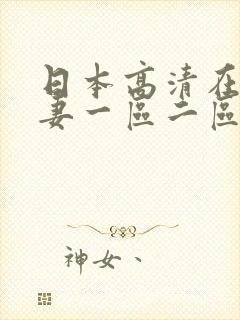 日本高清在
妻一區二區
神女、